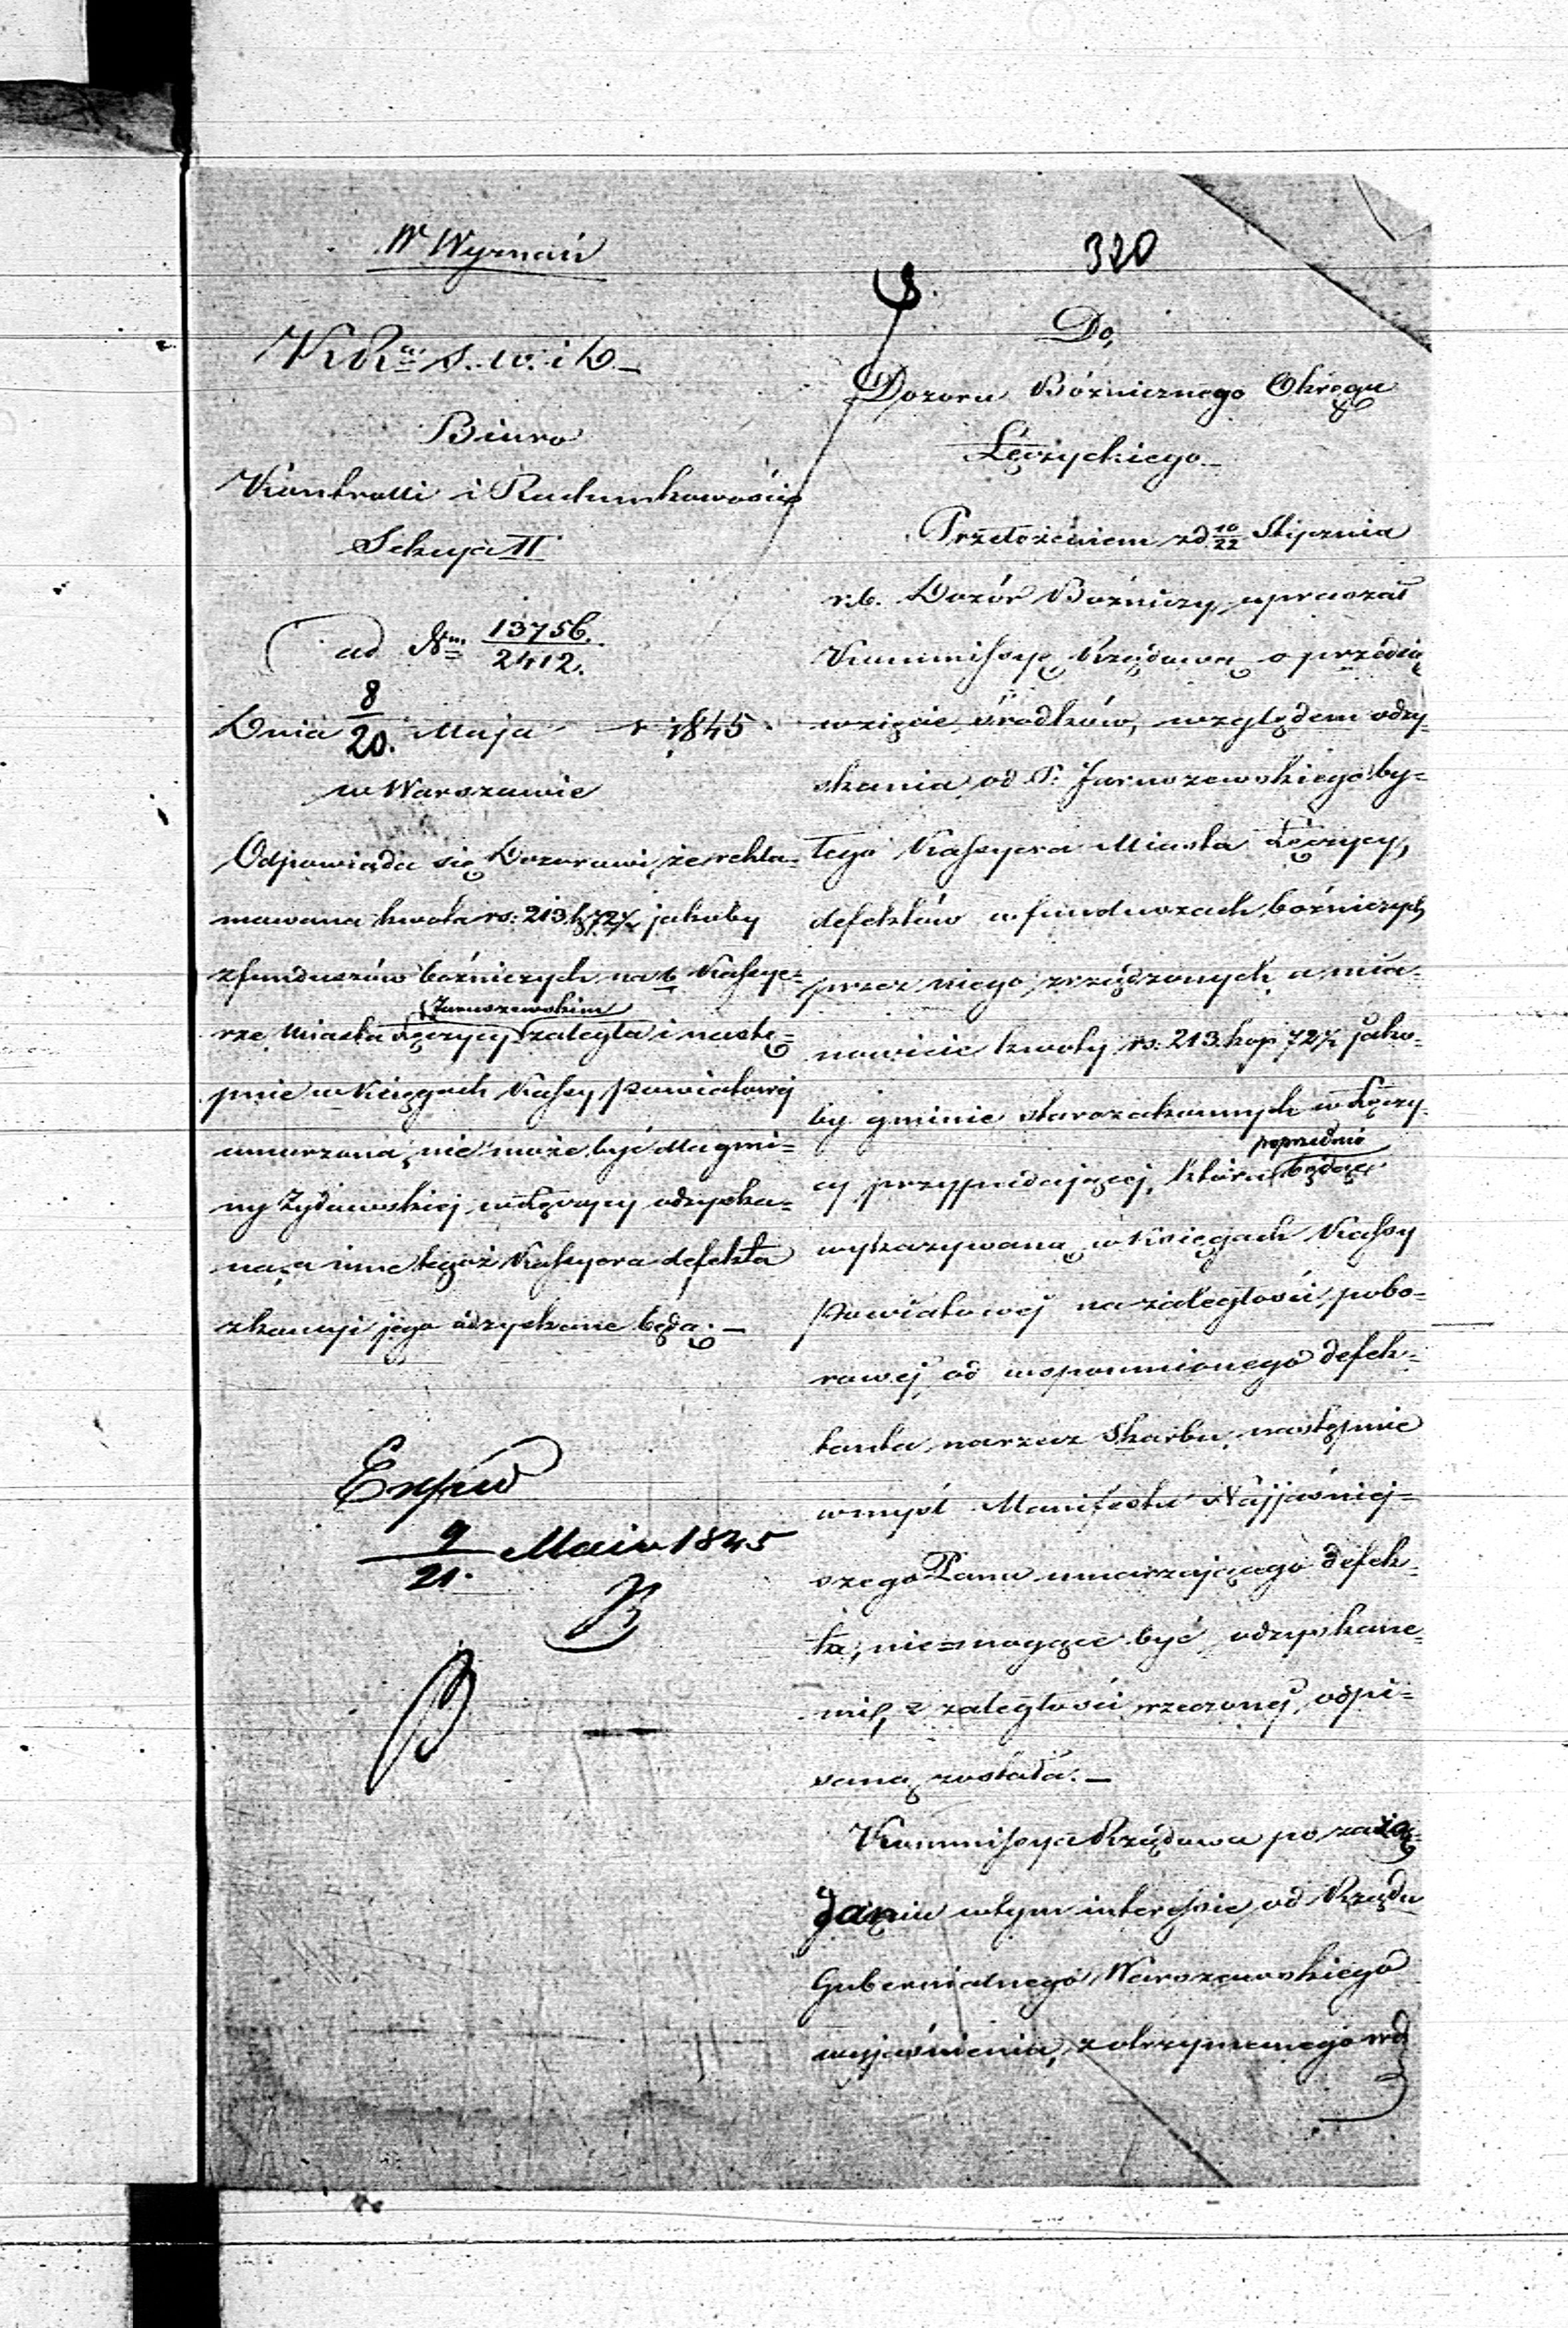 W. Wyznań
K. R.a s. w. i D. –
Biuro
Kontrolli i Rachunkowości
Sekcya II
ad Nrm 13756. / 2412.
Dnia 8/20. Maja r. 1845.
w Warszawie
Odpowiada się Dozorowi, że rekla=
mowana kwota rs: 213 k. 72½ jakoby
z funduszów bożniczych na b. Kassye=
rze Miasta Łęczycy Jaruszewskim zaległa i nastę=
pnie w Księgach Kassy Powiatowej
umorzona, nie może być dla gmi=
ny Żydowskiej w Łęczycy odzyska=
na, a inne tegoż Kassyera defekta
z kaucyi jego odzyskane będą. –
Exped
9/21. Maia 1845
B
320
Do,
Dozoru Bóżnicznego Okręgu
Łęczyckiego. –
Przełożeniem z d. 10/22 Stycznia
r. b. Dozór Bożniczy upraszał
Kommissyę Rządową o przedsię
wzięcie środków, względem odzy-
skania od P. Jaruszewskiego by=
łego Kassyera Miasta Łęczycy,
defektów w funduszach bożniczych
przez niego zrządzonych, a mia-
nowicie kwoty rs: 213. kop. 72½ jako-
by gminie starozakonnych w Łęczy-
cy przypadającej, która poprzednio będąc
wykazywaną w Księgach Kassy
Powiatowej na zaległości pobo=
rowej, od wspomnionego defek-
tanta na rzecz Skarbu, następnie
w myśl Manifestu Najjaśniej=
szego Pana umarzającego defek-
ta, nie=mogące być odzyskane-
mi, z zaległości rzeczonej, odpi=
saną została. –
Kommissya Rządowa po zażą-
daniu w tym interessie, od Rządu
Gubernialnego Warszawskiego
wyjaśnienia, z otrzymanego